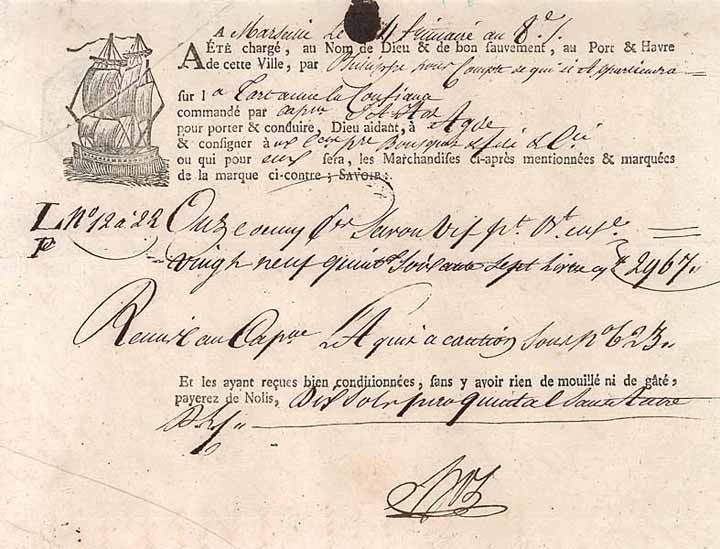 A Marseille le 4 frimaire an 8e
A ÉTÉ chargé, au Nom de Dieu & de bon sauvement, au Port & Havre
de cette Ville, par Philippe pour Compte de qui il Appartiendra
sur la Tartanne la Confiance
commandé par Capne
pour porter & conduire, Dieu aidant, à Agde
& consigner à Bousquet & Cie
ou qui pour eux sera, les Marchandises ci-après mentionnées & marquées
de la marque ci-contre; SAVOIR:
L No 12 a 22 Onze Savon Vif pt. Bt.
P vingt neuf quint. Soixante Sept Livres 2967
Remise au Capne Aquit a caution Sous No 623
Et les ayant reçues bien conditionnées, sans y avoir rien de mouillé ni de gâté,
payerez de Nolis, Dix Sols par quintal Sans Autre